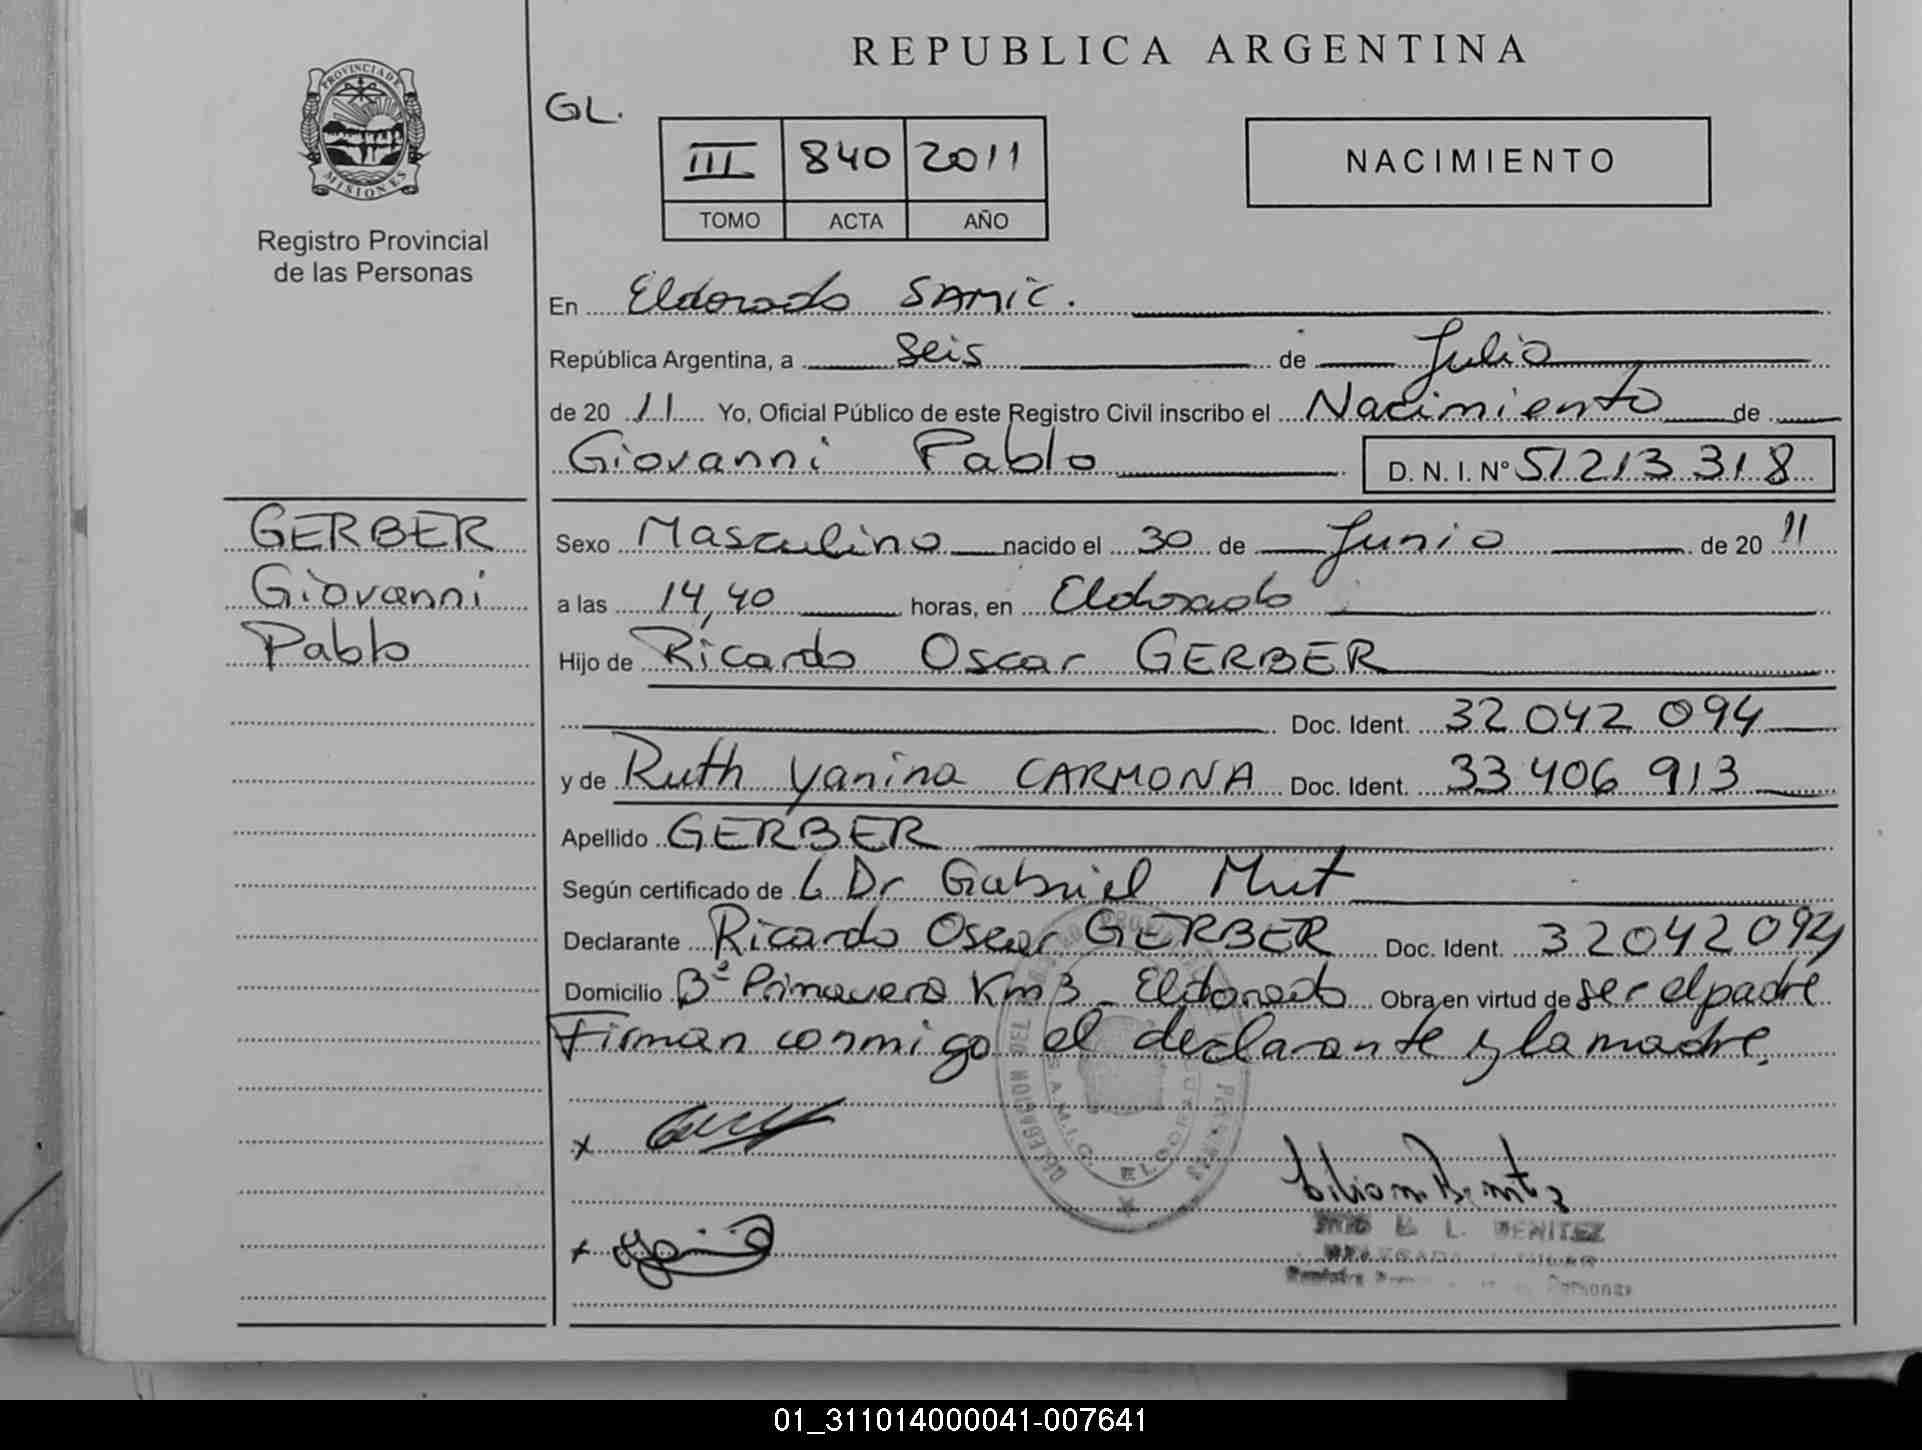 REPUBLICA ARGENTINA
PROVINCIA DE
MISIONES
Registro Provincial
de las Personas
GL.
III 840 2011
TOMO ACTA AÑO
NACIMIENTO
En Eldorado SAMIC.
República Argentina, a seis de Julio
de 20 11 Yo, Oficial Público de este Registro Civil inscribo el Nacimiento de
Giovanni Pablo D. N. I. Nº 51213318
GERBER
Giovanni
Pablo
Sexo Masculino nacido el 30 de Junio de 20 11
a las 14,40 horas, en Eldorado
Hijo de Ricardo Oscar GERBER
Doc. Ident. 32 042 094
y de Ruth Yanina CARMONA Doc. Ident. 33 406 913
Apellido GERBER
Según certificado de Dr Gabriel Mut
Declarante Ricardo Oscar GERBER Doc. Ident. 32042094
Domicilio Bº Primavera Km 3 - Eldorado Obra en virtud de ser el padre
Firman conmigo el declarante y la madre.
x
x
DELEGACION
S.A.M.I.C. ELDORADO
Lilian Benitez
L. BENITEZ
Personas
01_311014000041-007641